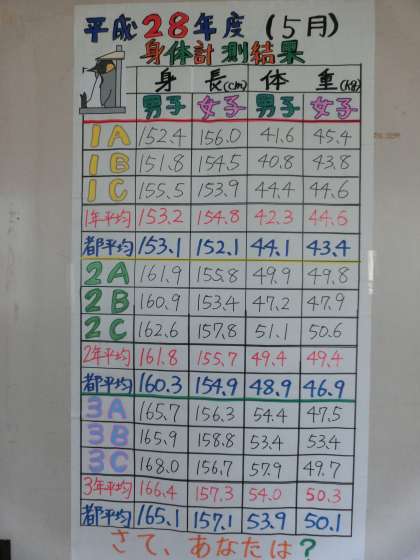 平成28年度(5月)
身体計測結果
身長(cm) 体重(kg)
男子 女子 男子 女子
1A 152.4 156.0 41.6 45.4
1B 151.8 154.5 40.8 43.8
1C 155.5 153.9 44.4 44.6
1年平均 153.2 154.8 42.3 44.6
都平均 153.1 152.1 44.1 43.4
2A 161.9 155.8 49.9 49.8
2B 160.9 153.4 47.2 47.9
2C 162.6 157.8 51.1 50.6
2年平均 161.8 155.7 49.4 49.4
都平均 160.3 154.9 48.9 46.9
3A 165.7 156.3 54.4 47.5
3B 165.9 158.8 53.4 53.4
3C 168.0 156.7 57.9 49.7
3年平均 166.4 157.3 54.0 50.3
都平均 165.1 157.1 53.9 50.1
さて、あなたは?